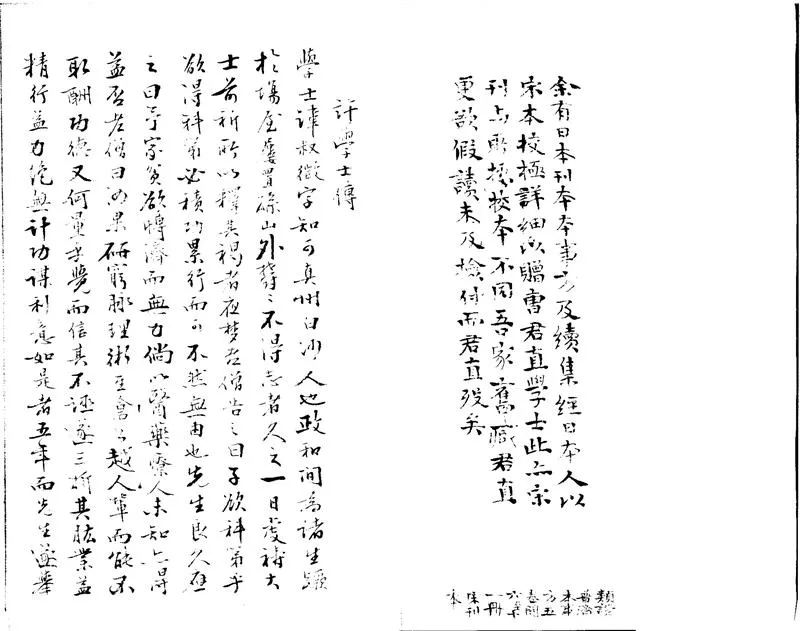 余有日本刊本本事方及續集經日本人以
宋本校極詳細以贈曹君直學士此亦宋
刊与所據校本不同吾家舊藏君直
更欲假讀未及檢付而君直歿矣
類證
普濟
本事
方五
卷闕
一冊
宋刊
本
許學士傳
學士諱叔微字知可真州白沙人也政和間為諸生躓
於場屋屢置孫山外鬱〻不得志者久之一日虔禱大
士前祈所以釋其褐者夜梦老僧告之曰子欲科第乎
欲得科第必積功累行而可不然無由也先生良久應
之曰予家貧欲博濟而無力倘以醫藥療人未知亦得
益否老僧曰汝果研窮脈理術至會公越人輩而能不
取酬功德又何量乎覺而信其不誣遂三折其肱業益
精行益力絕無計功謀利意如是者五年而先生遂舉